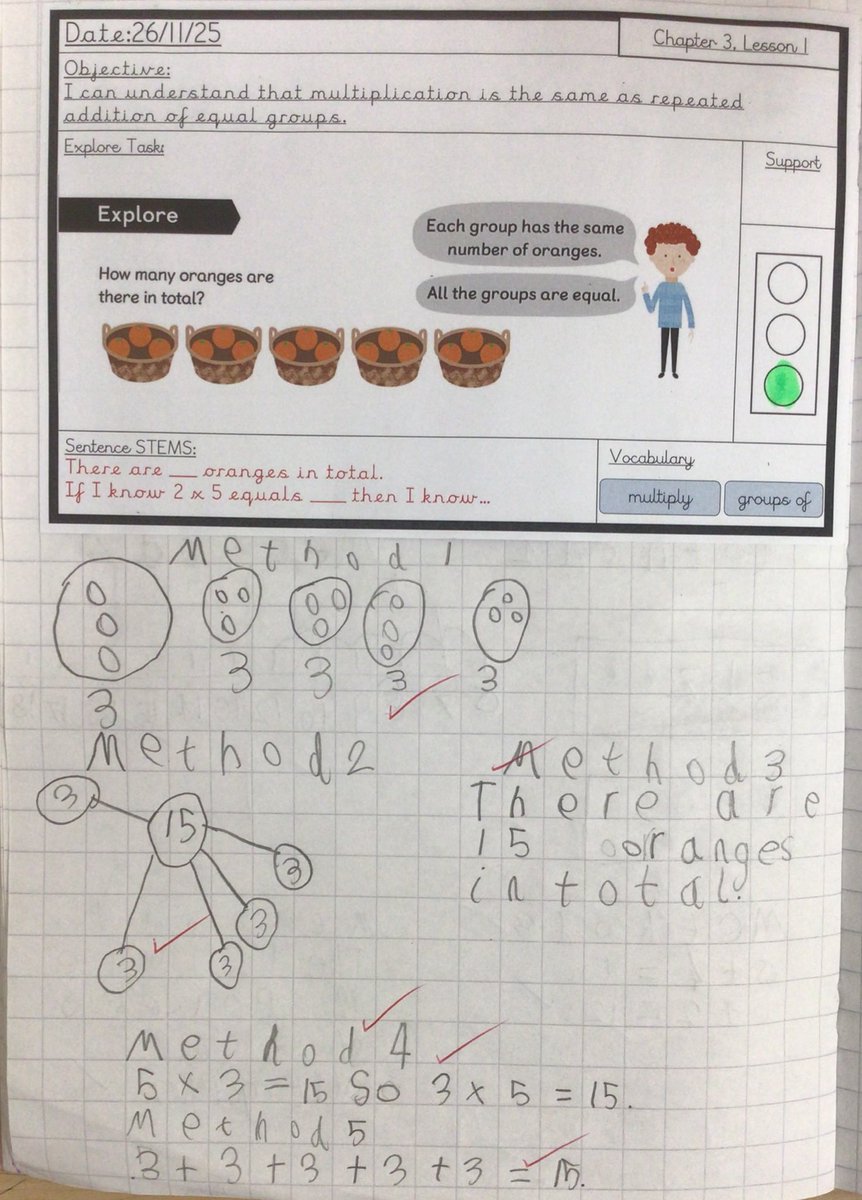 Date:26/11/25
Chapter 3, Lesson 1
Objective:
I can understand that multiplication is the same as repeated
addition of equal groups.
Explore Task:
Support
Explore
Each group has the same
number of oranges.
How many oranges are
there in total?
All the groups are equal.
Sentence STEMS:
There are ___ oranges in total.
If I know 2 x 5 equals ___ then I know...
Vocabulary
multiply
groups of
Method 1
3 3 3 3 3
Method 2
3
15
3
3
3
3
Method 3
There are
15 oranges
in total.
Method 4
5 × 3 = 15 So 3 × 5 = 15.
Method 5
3 + 3 + 3 + 3 + 3 = 15.